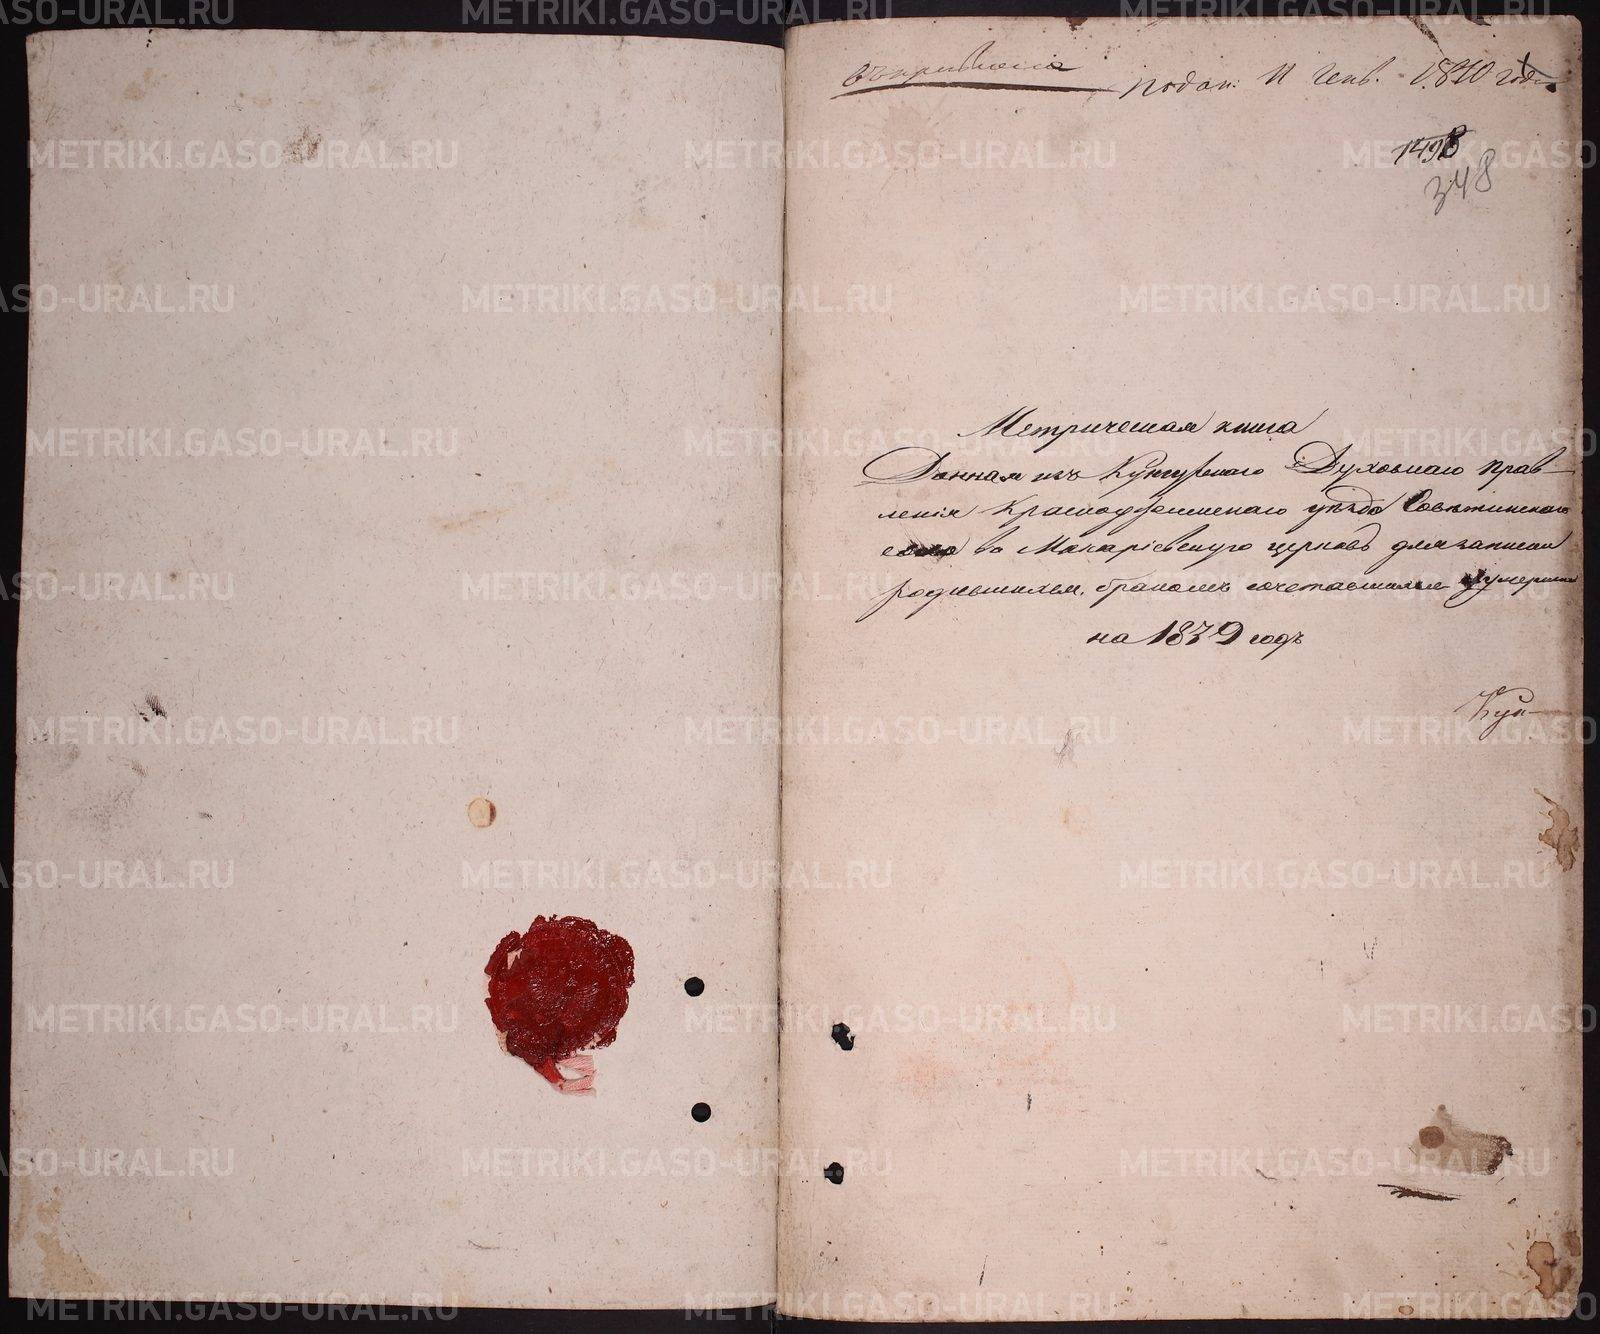 Подан: 11 Генв. 1840 года
1498
348
Метрическая книга
Данная изъ Кунгурскаго Духовнаго прав-
ленія Красноуфимскаго уѣзда
во Макаріевскую церковь для записки
родившихся, бракомъ сочетавшихся и умершихъ
на 1839 годъ
Кун-
METRIKI.GASO-URAL.RU